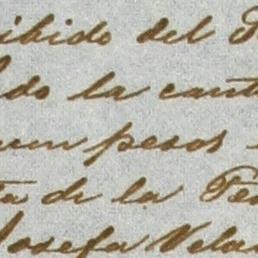 ibido del
do la cant
un pesos
ta de la Te
Josefa Vela